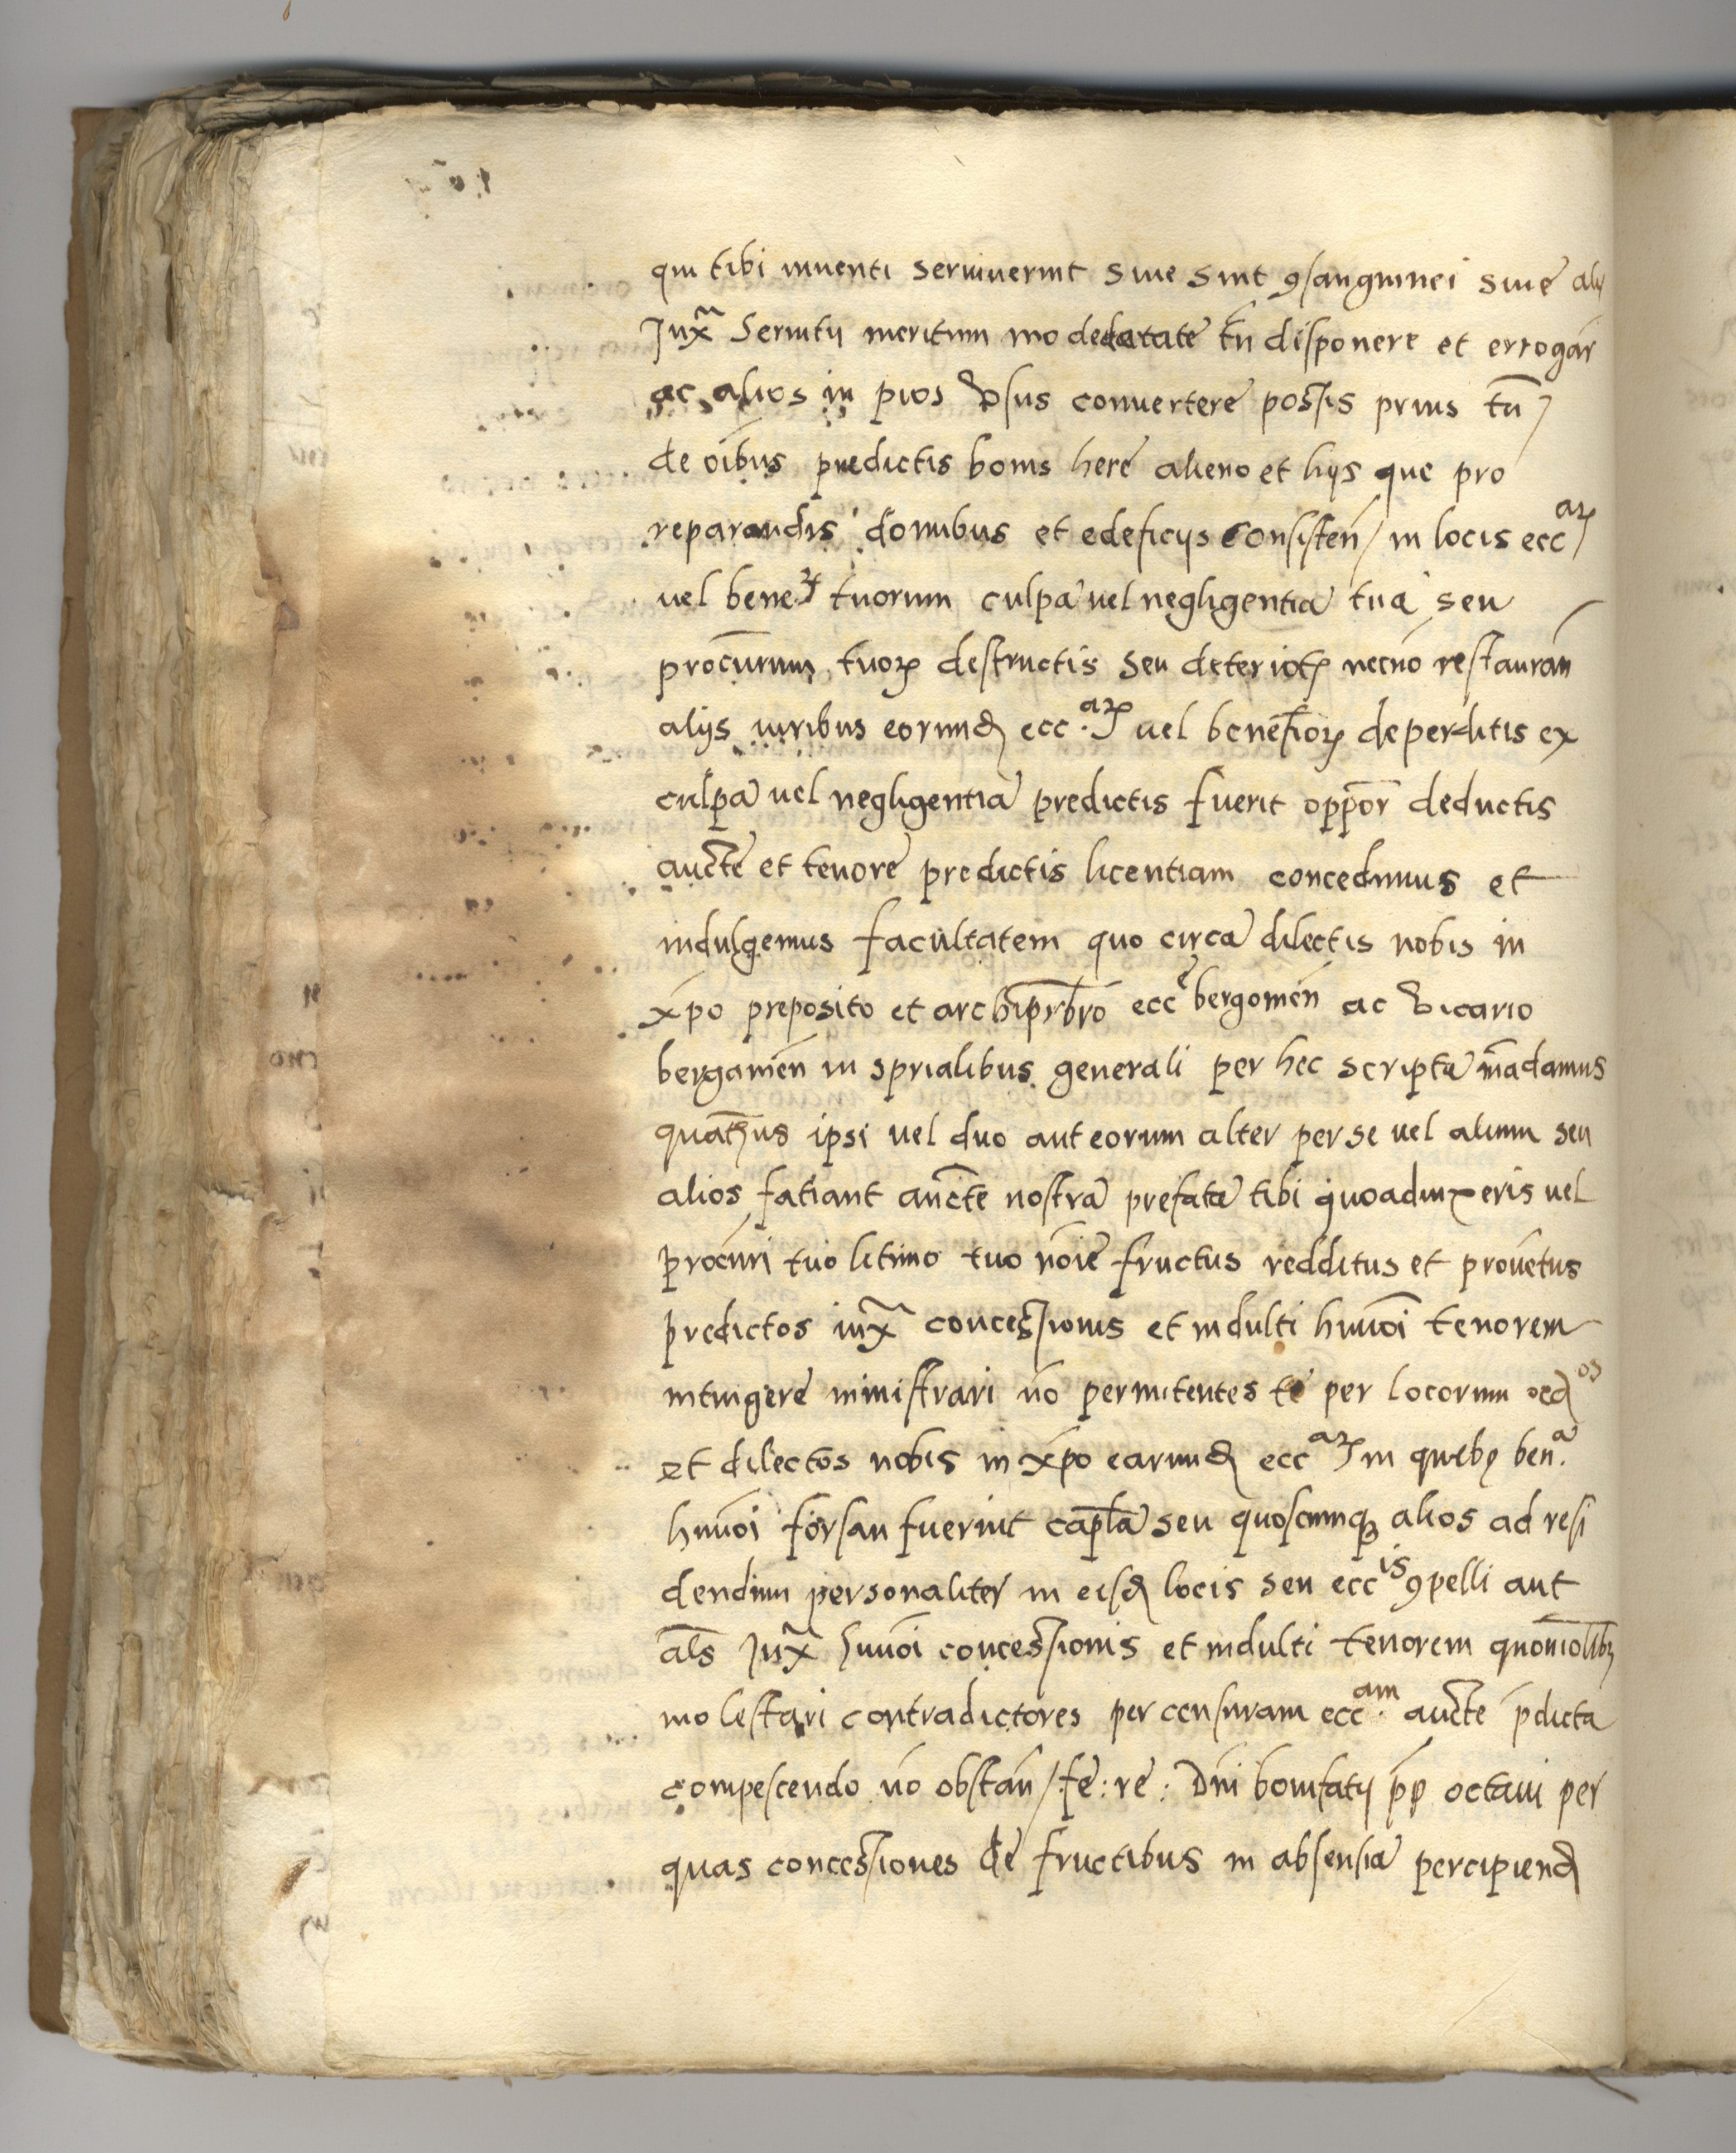 qui tibi inuenti seruiuerint siue sint ꝯsanguinei siue alij
Juxᷓ seruitij meritum mo dederatate tn̄ disponere et errogar̄
ac alios in pios vsus conuertere possis prius tn̄
de oībus predictis bonis here alieno et hijs que pro
reparandis domibus et edeficijs consisten̄ in locis eccaꝝ
uel bene tuorum culpa uel negligentia tua seu
procurum̄ tuoꝝ destructis seu deteriotꝝ necno restauran̄
alijs iuribus eorund̄ ecc.aꝝ uel benefioꝝ deperditis ex
culpa uel negligentia predictis fuerit oppor̄ deductis
aucte et tenore predictis licentiam concedimus et
indulgemus facultatem quo circa dilectis nobis in
xp̄o preposito et archipr̄bro ecce bergomen̄ ac vicario
bergamen̄ in sprialibus generali per hec scripta m̄adamus
quatꝰus ipsi uel duo aut eorum alter per se uel alium seu
alios fatiant aucte nostra prefata tibi quoaduixeris uel
procūri tuo litimo tuo noīe fructus redditus et prouētus
predictos iuxᷓ concessionis et indulti hmōi tenorem
intuigere ministrari nō permitentes te per locorum ordos
et dilectos nobis in xp̄o earund̄ eccaꝝ in quibꝫ bena.
hmōi forsan fuerint cap̄la seu quoscumqꝫ alios ad resi
dendum personaliter in eisd̄ locis seu eccis ꝯpelli aut
als̄ Juxᷓ hmōi concessionis et indulti tenorem quomōlibꝫ
molestari contradictores per censuram ecc.am aucte p̄dicta
compescendo nō obstan̄ / fe: re: Dn̄i bonifatij pp̄ octaui per
quas concessiones de fructibus in absensia percipiend̄